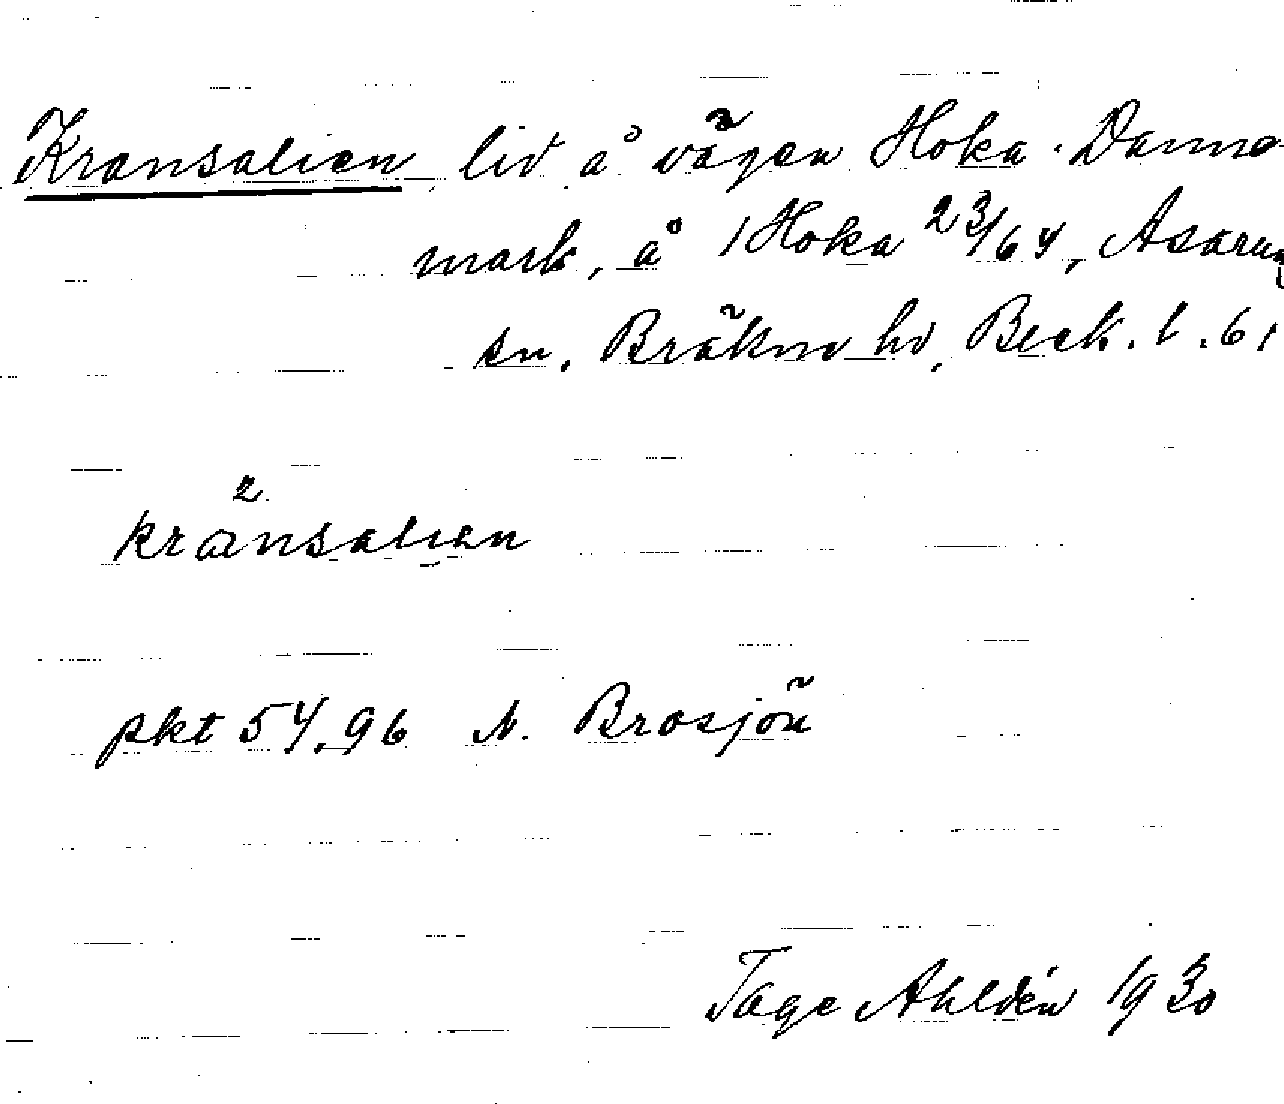 Kransalien, lid å vägen Hoka-Danne-
mark, å 1 Hoka 23/64, Asarum
sn. Bräkne hd, Beck. l. 61
2
kränsalien
pkt 54,96 N. Brosjön
Tage Ahldén 1930